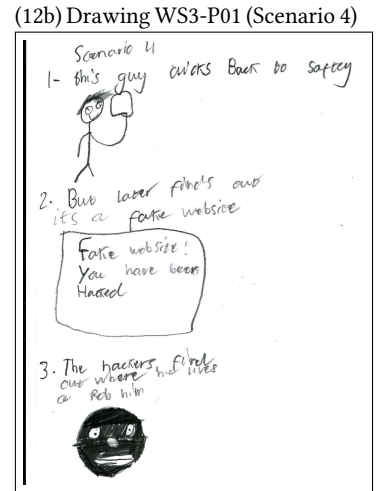 (12b) Drawing WS3-P01 (Scenario 4)
Scenario 4
1- this guy clicks Back to saftey
2. But later finds out
it's a fake website
Fake website!
You have been
Hacked
3. The hackers find
out where he lives
a Rob him